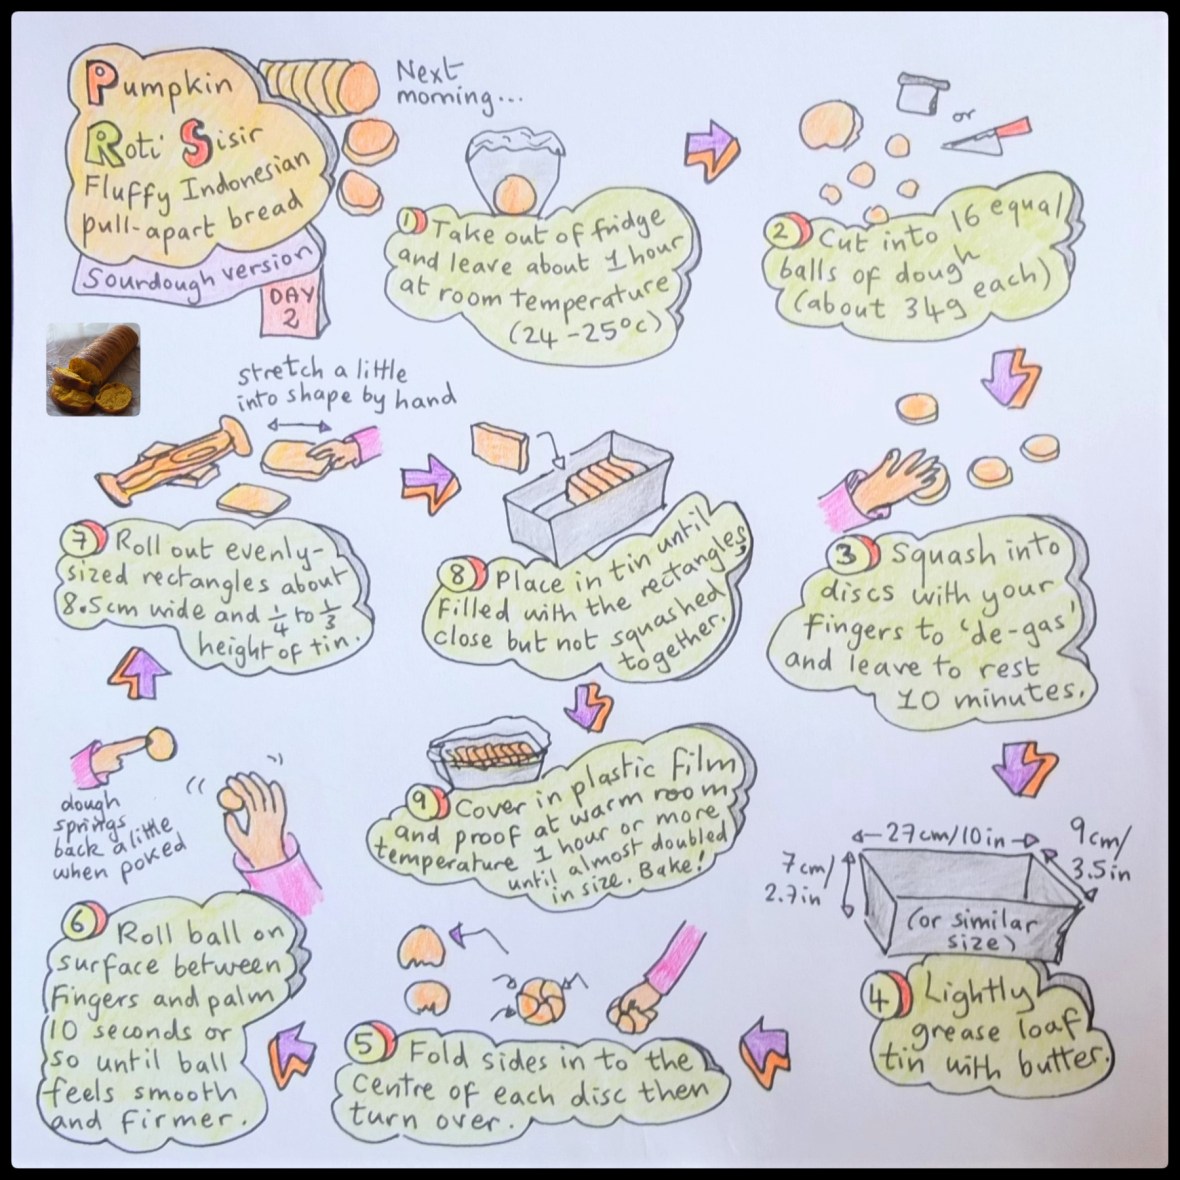 Pumpkin
Roti Sisir
Fluffy Indonesian
pull-apart bread
Sourdough version
DAY
2
Next
morning...
1 Take out of fridge
and leave about 1 hour
at room temperature
(24-25°c)
or
2 Cut into 16 equal
balls of dough
(about 34g each)
3 Squash into
discs with your
fingers to 'de-gas'
and leave to rest
10 minutes.
27cm/10in
9cm/
3.5in
7cm/
2.7in
(or similar
size)
4 Lightly
grease loaf
tin with butter.
5 Fold sides in to the
centre of each disc then
turn over.
dough
springs
back a little
when poked
6 Roll ball on
surface between
fingers and palm
10 seconds or
so until ball
feels smooth
and firmer.
stretch a little
into shape by hand
7 Roll out evenly-
sized rectangles about
8.5cm wide and 1/4 to 1/3
height of tin.
8 Place in tin until
filled with the rectangles
close but not squashed
together.
9 Cover in plastic film
and proof at warm room
temperature 1 hour or more
until almost doubled
in size. Bake!